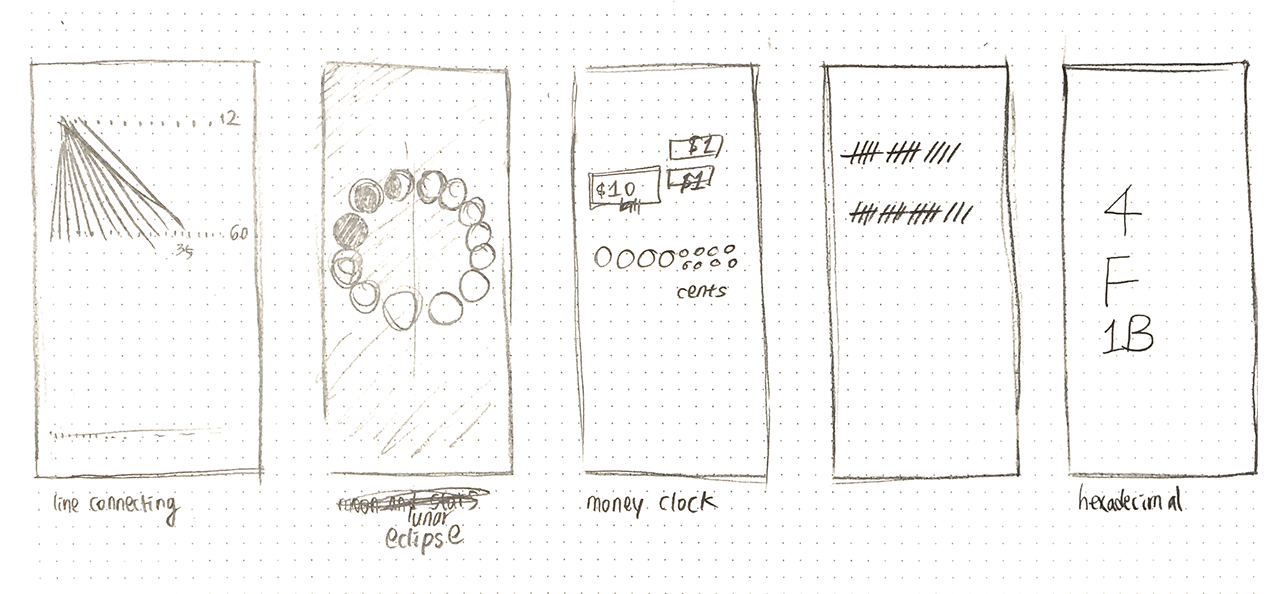 12
60
35
line connecting
moon and stars
lunar
eclipse
$1
$10
$1
bill
cents
money clock
4
F
1B
hexadecimal